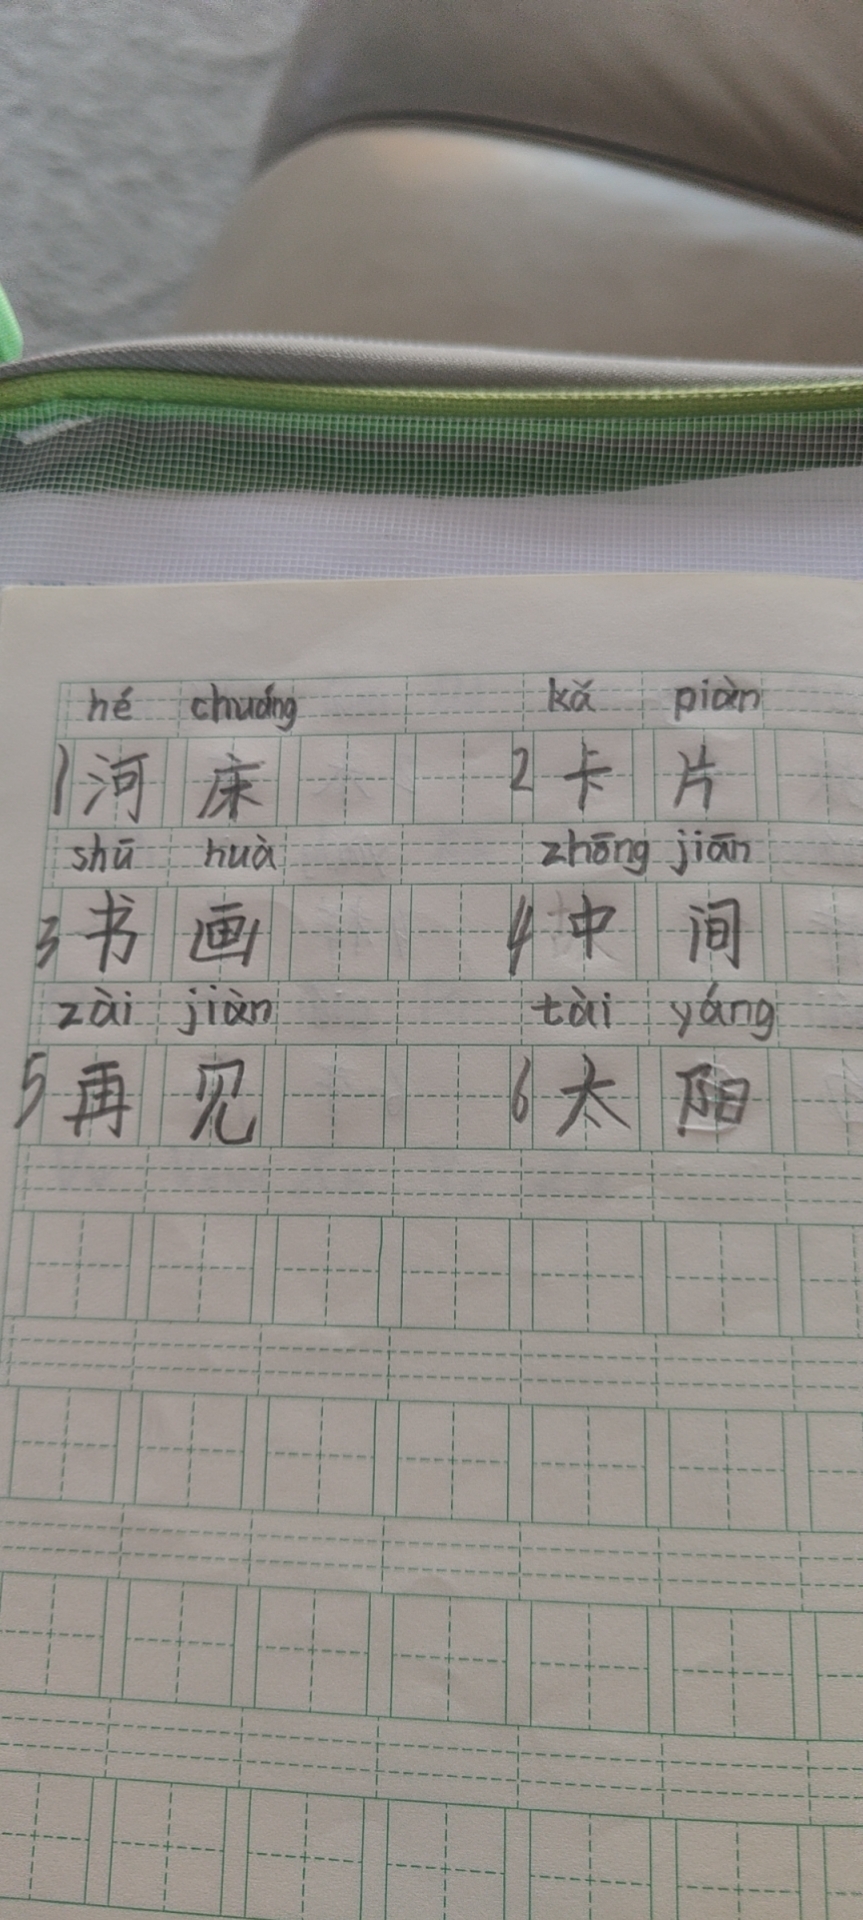 hé chuáng kǎ piàn
1河床 2卡片
shū huà zhōng jiān
3书画 4中间
zài jiàn tài yáng
5再见 6太阳